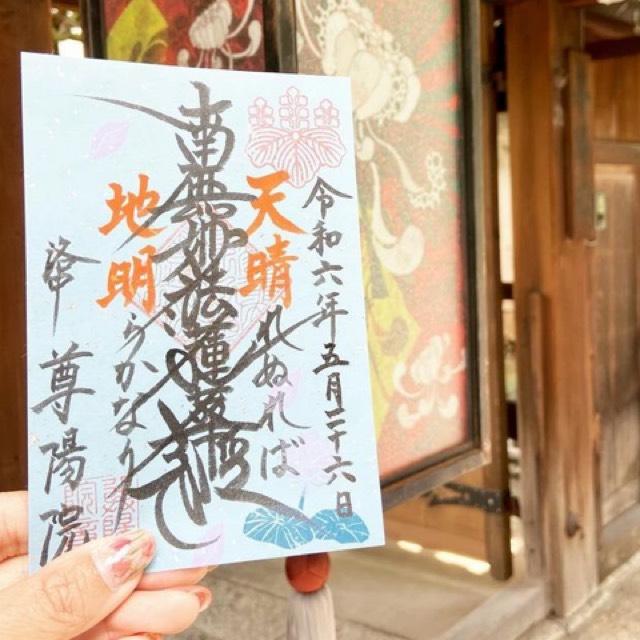 令和六年五月二十六日
天晴れぬれば
南無妙法蓮華経
地明らかなり
洛中
尊陽院